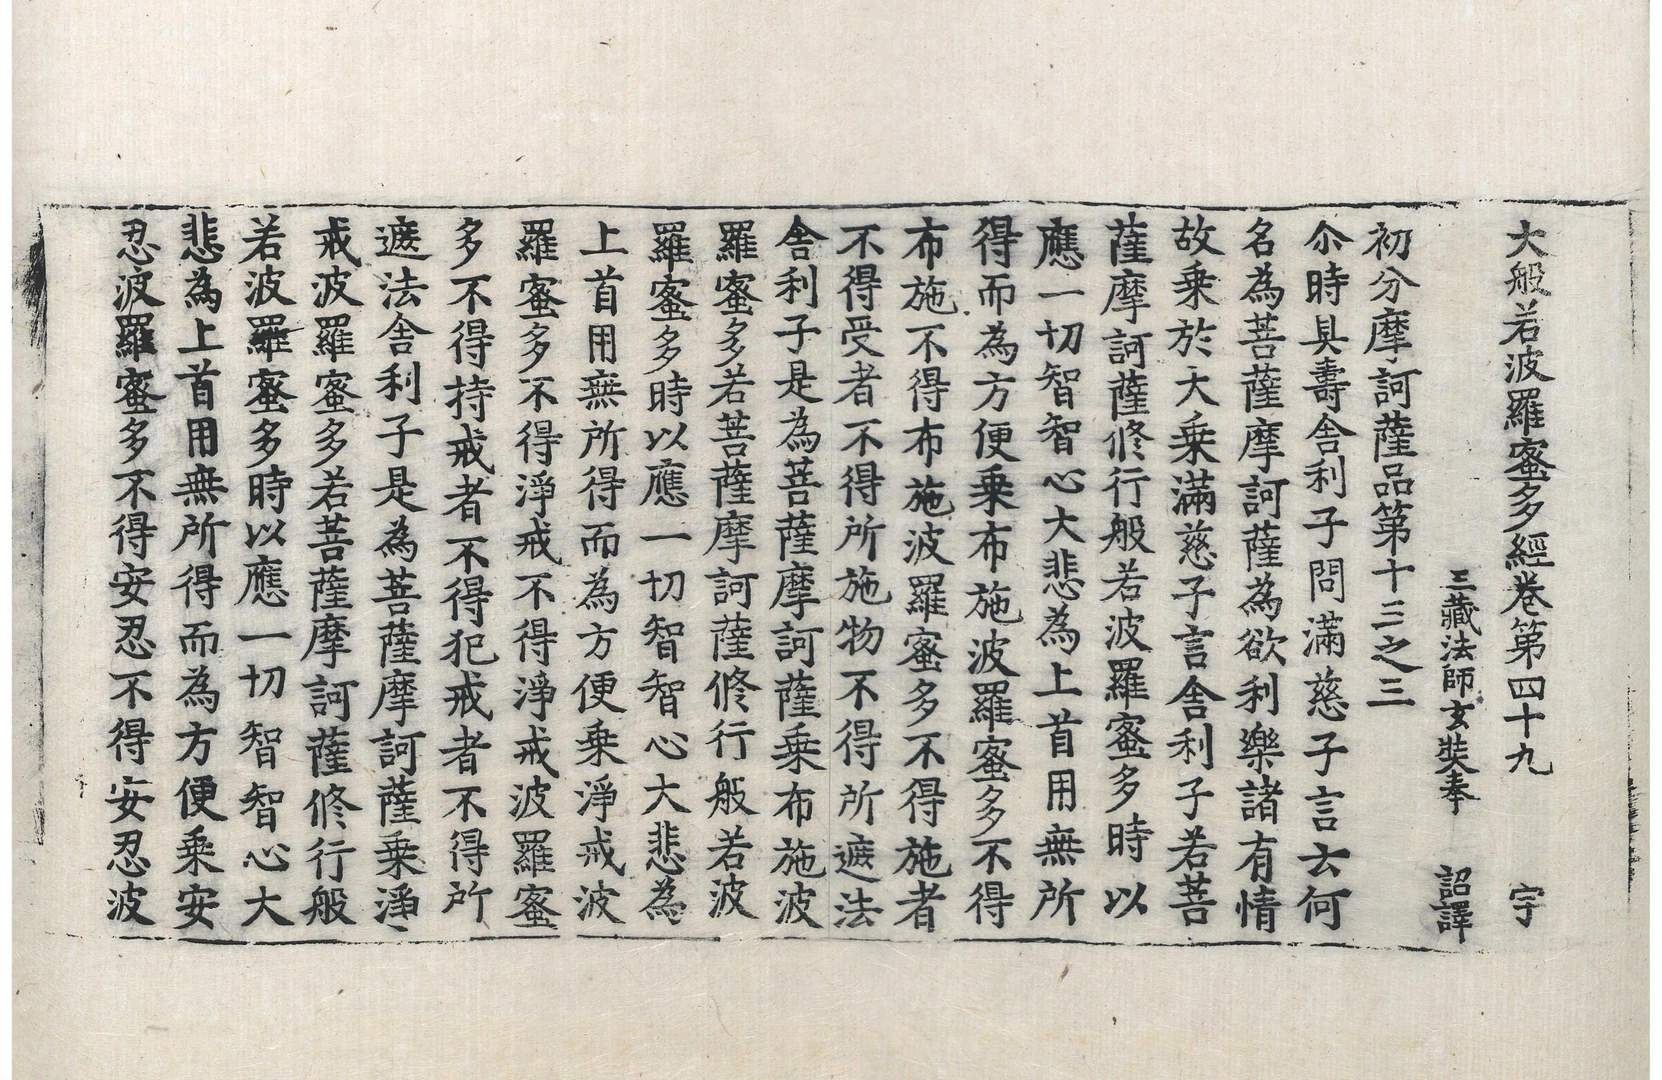 大般若波羅蜜多經卷第四十九　宇
三藏法師玄奘奉　詔譯
初分摩訶薩品第十三之三
尒時具壽舍利子問滿慈子言云何
名為菩薩摩訶薩為欲利樂諸有情
故乘於大乘滿慈子言舍利子若菩
薩摩訶薩修行般若波羅蜜多時以
應一切智智心大悲為上首用無所
得而為方便乘布施波羅蜜多不得
布施不得布施波羅蜜多不得施者
不得受者不得所施物不得所遮法
舍利子是為菩薩摩訶薩乘布施波
羅蜜多若菩薩摩訶薩修行般若波
羅蜜多時以應一切智智心大悲為
上首用無所得而為方便乘淨戒波
羅蜜多不得淨戒不得淨戒波羅蜜
多不得持戒者不得犯戒者不得所
遮法舍利子是為菩薩摩訶薩乘淨
戒波羅蜜多若菩薩摩訶薩修行般
若波羅蜜多時以應一切智智心大
悲為上首用無所得而為方便乘安
忍波羅蜜多不得安忍不得安忍波